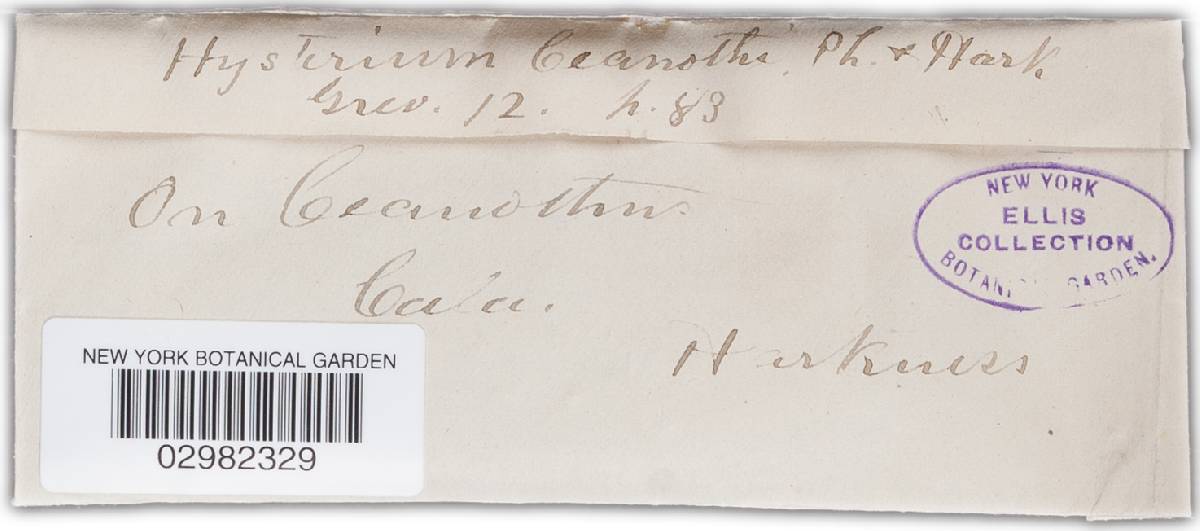 Hysterium Ceanothi, Ph. & Hark
Grev. 12. p. 83
On Ceanothus
Cala.
Harkness
NEW YORK
ELLIS
COLLECTION
BOTANICAL GARDEN.
NEW YORK BOTANICAL GARDEN
02982329